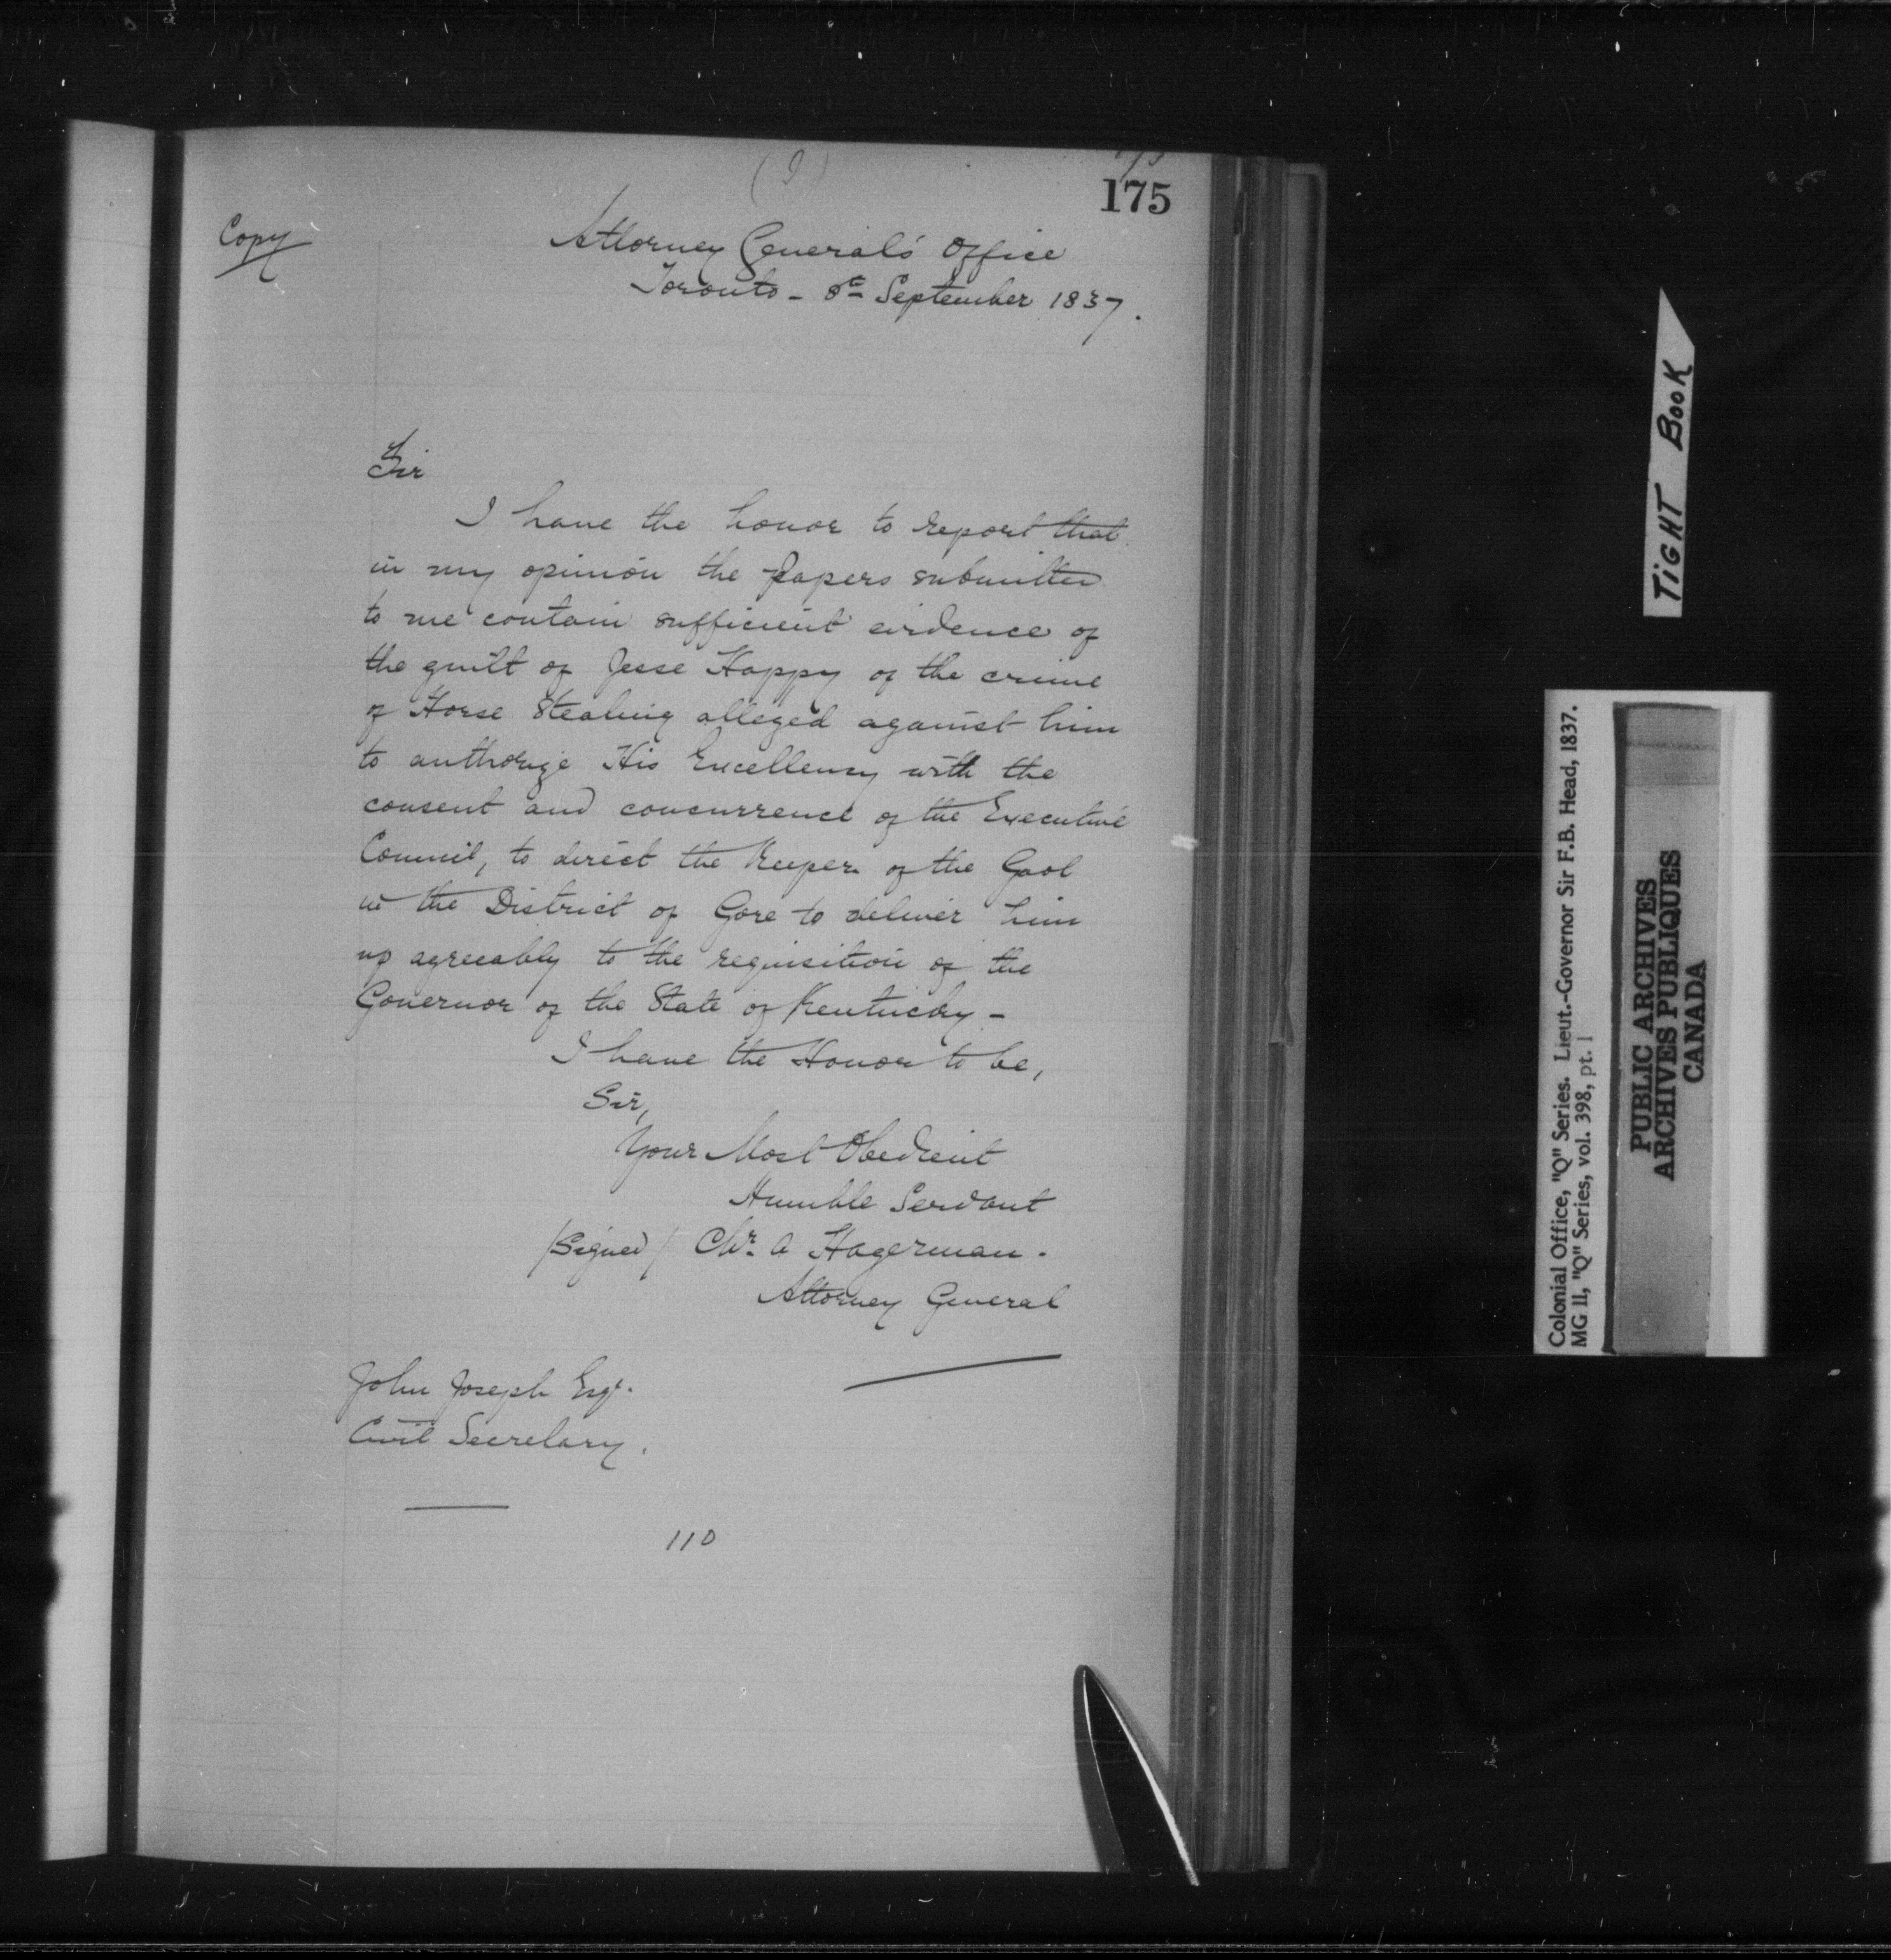 175
Copy
Attorney General's Office
Toronto - 8th September 1837.
Sir
I have the honor to report that
in my opinion the papers submitted
to me contain sufficient evidence of
the guilt of Jesse Happy of the crime
of Horse Stealing alleged against him
to authorize His Excellency with the
consent and concurrence of the Executive
Council, to direct the Keeper of the Gaol
in the District of Gore to deliver him
up agreeably to the requisition of the
Governor of the State of Kentucky -
I have the Honor to be,
Sir,
Your Most Obedient
Humble Servant
/Signed/ Chr. A Hagerman.
Attorney General
John Joseph Esqr.
Civil Secretary.
110
TIGHT BOOK
Colonial Office, "Q" Series. Lieut.-Governor Sir F.B. Head, 1837.
MG 11, "Q" Series, vol. 398, pt. 1
PUBLIC ARCHIVES
ARCHIVES PUBLIQUES
CANADA